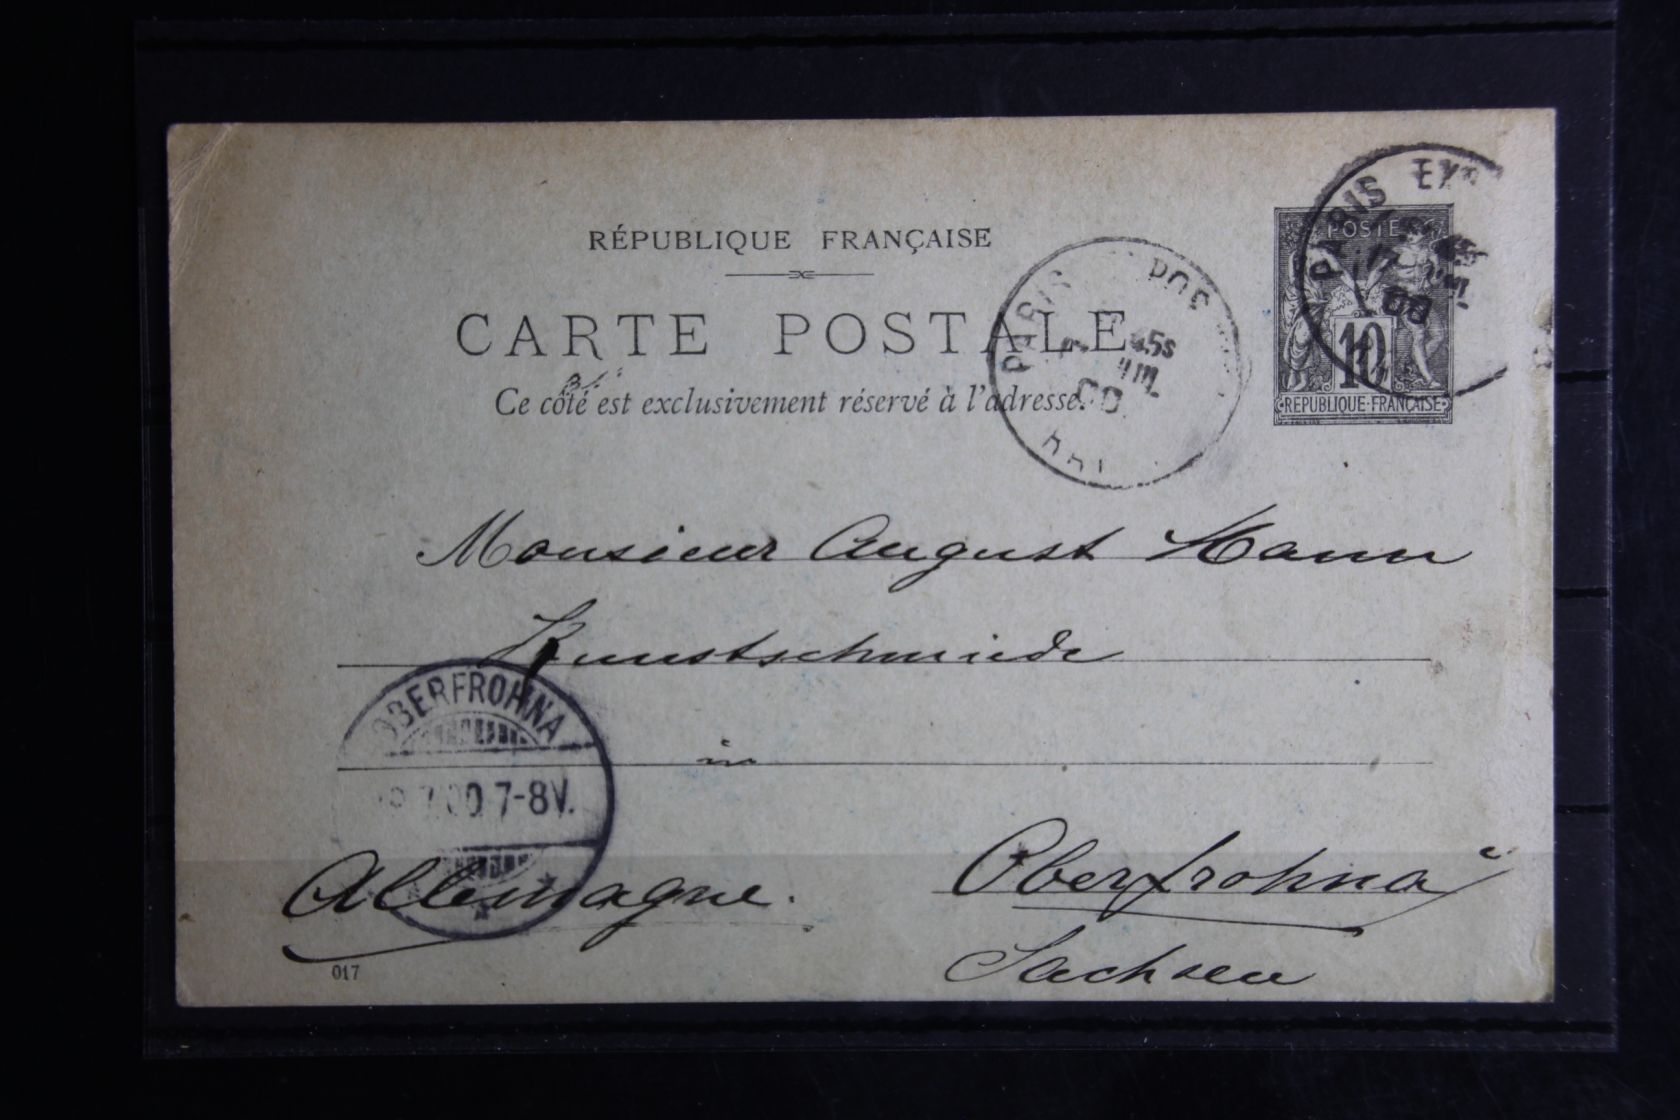 RÉPUBLIQUE FRANÇAISE
CARTE POSTALE
Ce côté est exclusivement réservé à l'adresse.
PARIS
POSTE
00
10
REPUBLIQUE·FRANÇAISE
PARIS
45S
00
Monsieur August Hann
Kunstschmiede
in
OBERFROHNA
7-8V.
Allemagne.
Oberfrohna
Sachsen
017